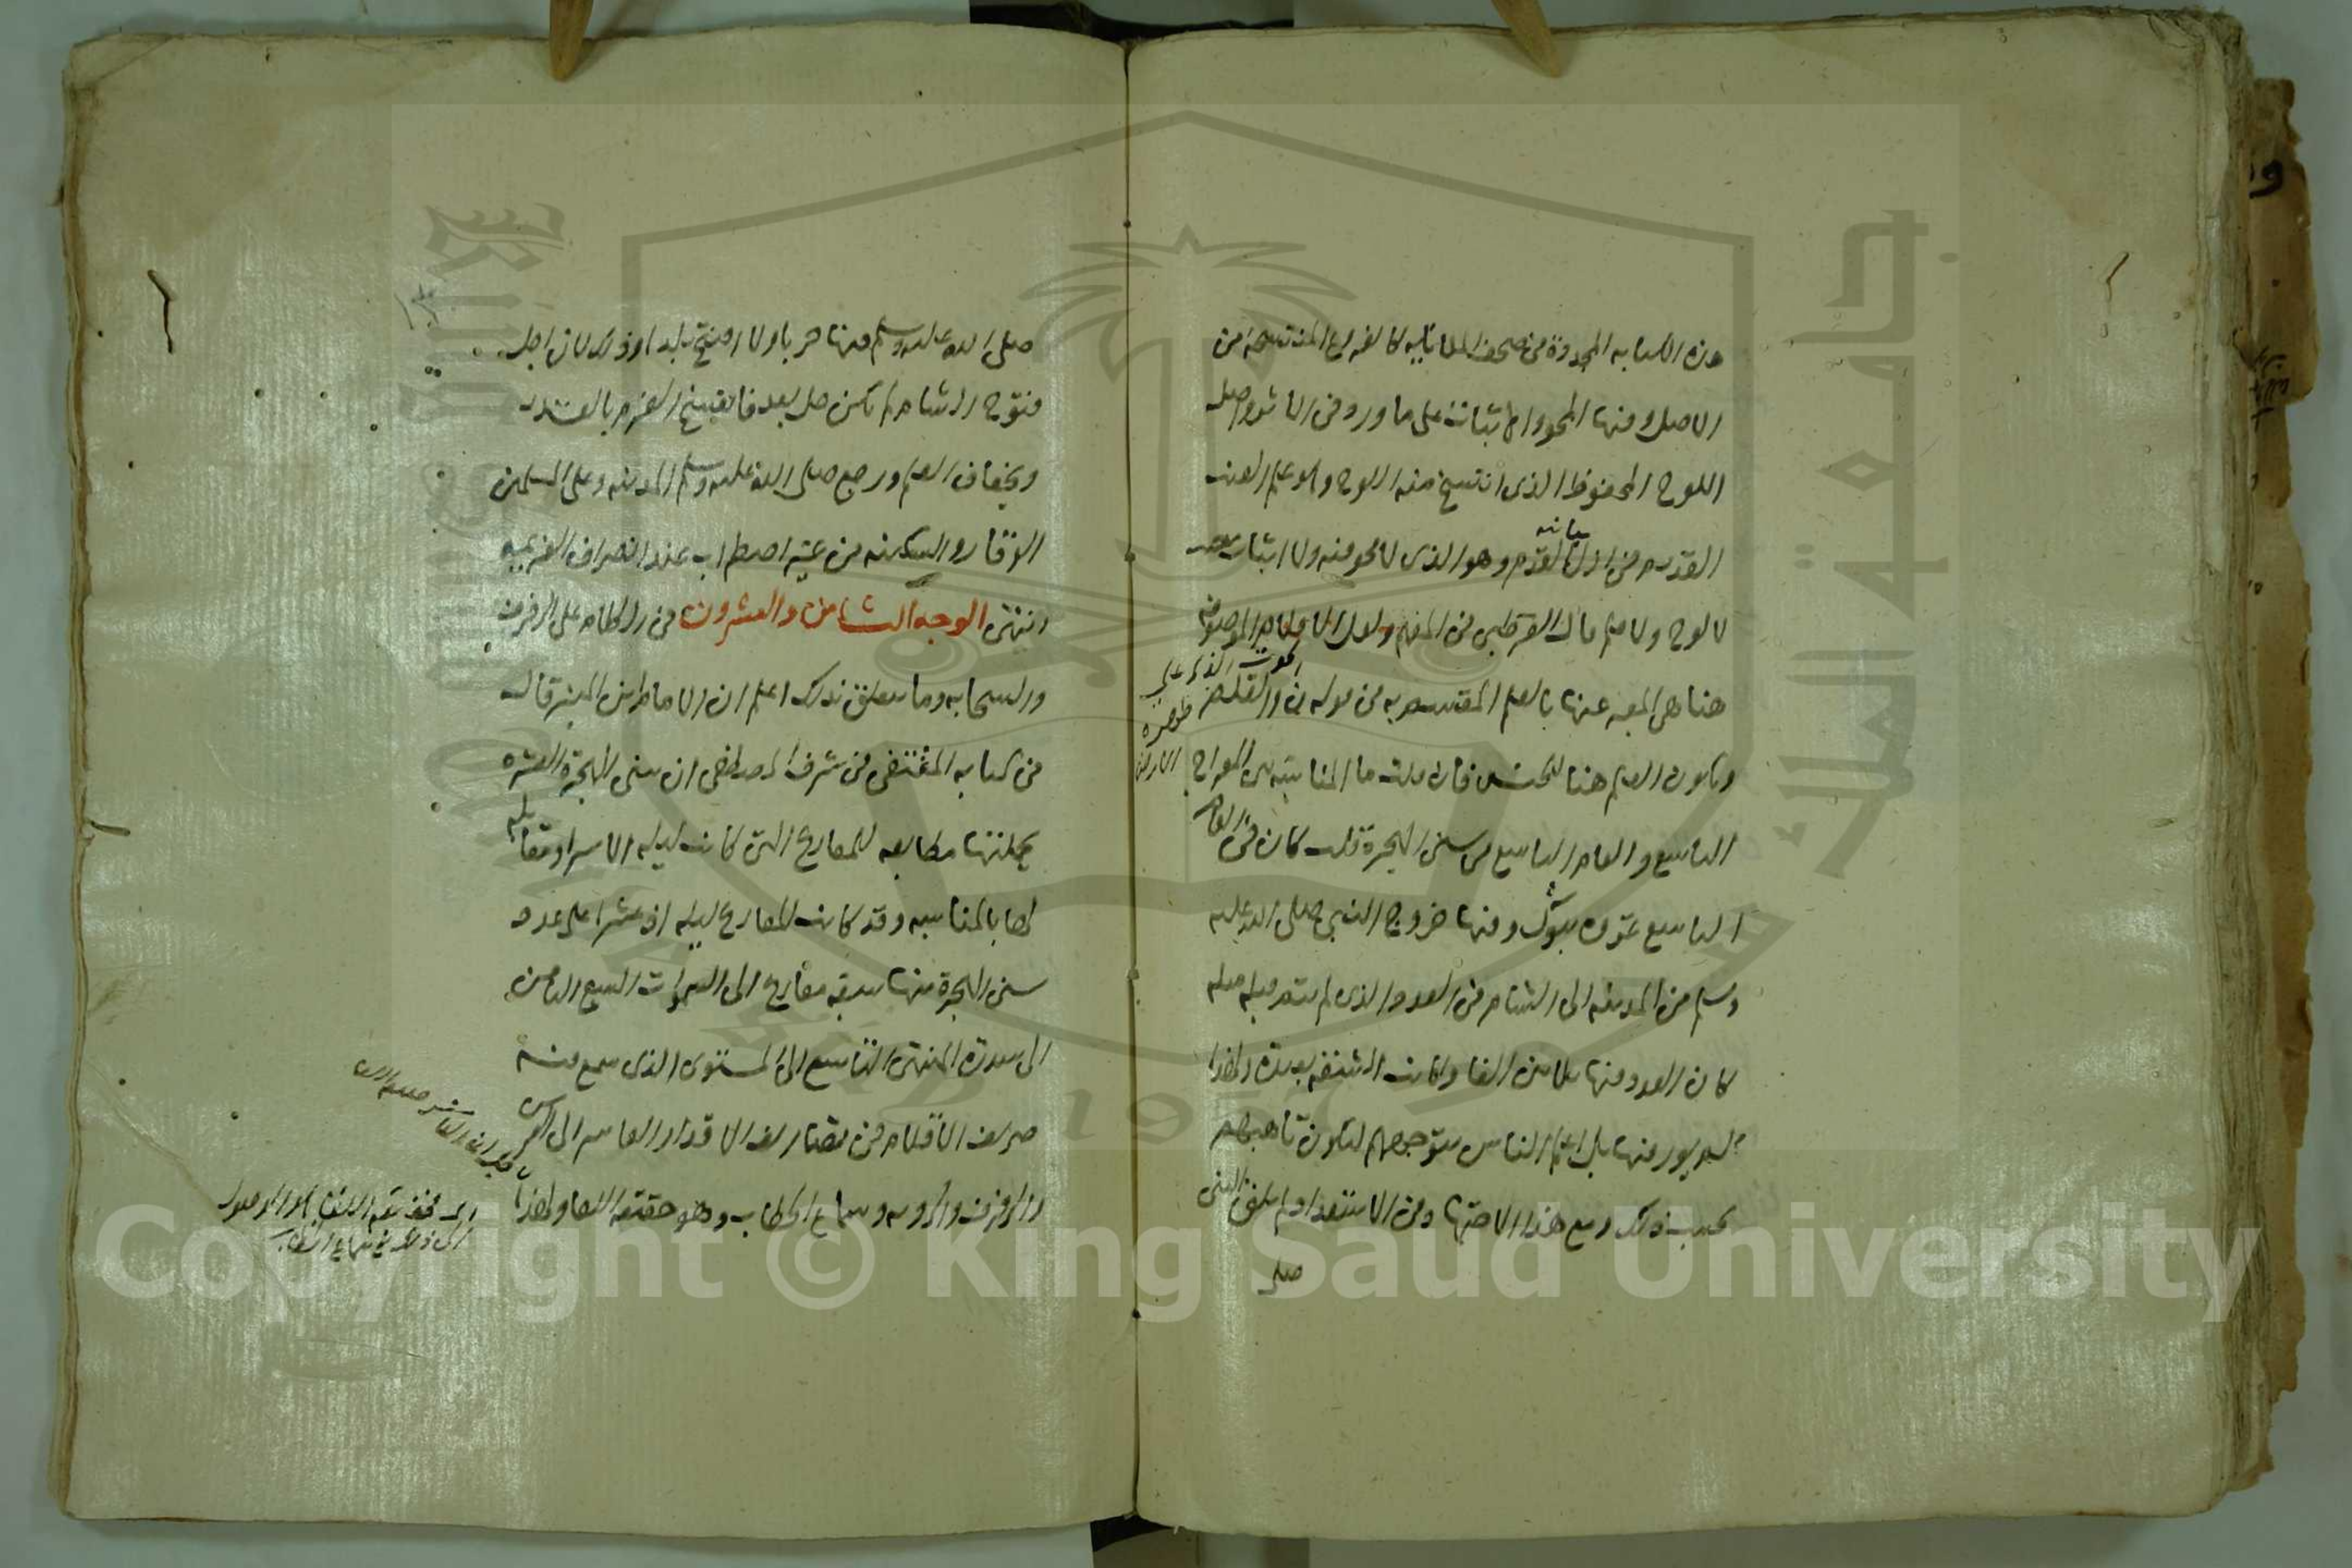 هذه الكتابه المحدوة من صحف الملائكيه كالفروع المنتسخه من
الاصل ومنها المحو والاثبات على ما ورد فى الاثر واصل
اللوح المحفوظ الذى انتسخ منه اللوح وهو علم الغيب
القديم فى ازل القدم وهو الذى لا محو منه ولا اثبات
بيانه
لا لوح ولا قلم قال القرطبى فى المفهم ولعل الاقلام الموصوفه
هنا هى المعبر عنها بالقلم المقسم به فى قوله ن والقلم
الحوت الذى على
ظهره
الارض
ويكون القلم هنا للجنس فان قلت ما المناسبه بين المعراج
التاسع والعام التاسع من سنى الهجرة قلت كان فى العام
التاسع غزوه تبوك ومنها خروج النبى صلى الله عليه
وسلم من المدينه الى الشام فى العدد الذى لم يتم قبله مثله
كان العدد منها ثلاثين الفا وكانت الشقه بعيدة ولهذا
لم يور منها بل اعلم الناس بتوجههم ليكون تاهبهم
بحسب ذلك ومع هذا الاجتهاد فى الاستعداد لم يلق النبى
صلى
صلى الله عليه وسلم منها حربا ولا افتتح بلدا وذلك لان اجل
فتوح الشام لم يكن حل بعد فانفسخ العزم بالقدر
وبجفاف القلم ورجع صلى الله عليه وسلم المدينه وعلى المسلمين
الوقار والسكينه من غير اضطراب عند انصراف العزيمه
وانتهى الوجه الثامن والعشرون فى الكلام على الرفرف
والسحابه وما يتعلق بذلك اعلم ان الامام ابن المنير قال
فى كتابه المقتفى فى شرف المصطفى ان سنى الهجرة العشره
بجملتها مطابقه للمعاريج التى كانت ليله الاسراء ومقابله
لها بالمناسبه وقد كانت المعاريج ليله اذ عشرا على عدد
سنى الهجرة منها سبعه معاريج الى السموات السبع الثامن
الى سدرة المنتهى التاسع الى المستوى الذى سمع منه
صريف الاقلام فى تصاريف الاقدار العاشر الى العرش
والرفرف والرويه وسماع الخطاب وهو حقيقه اللقا ولهذا